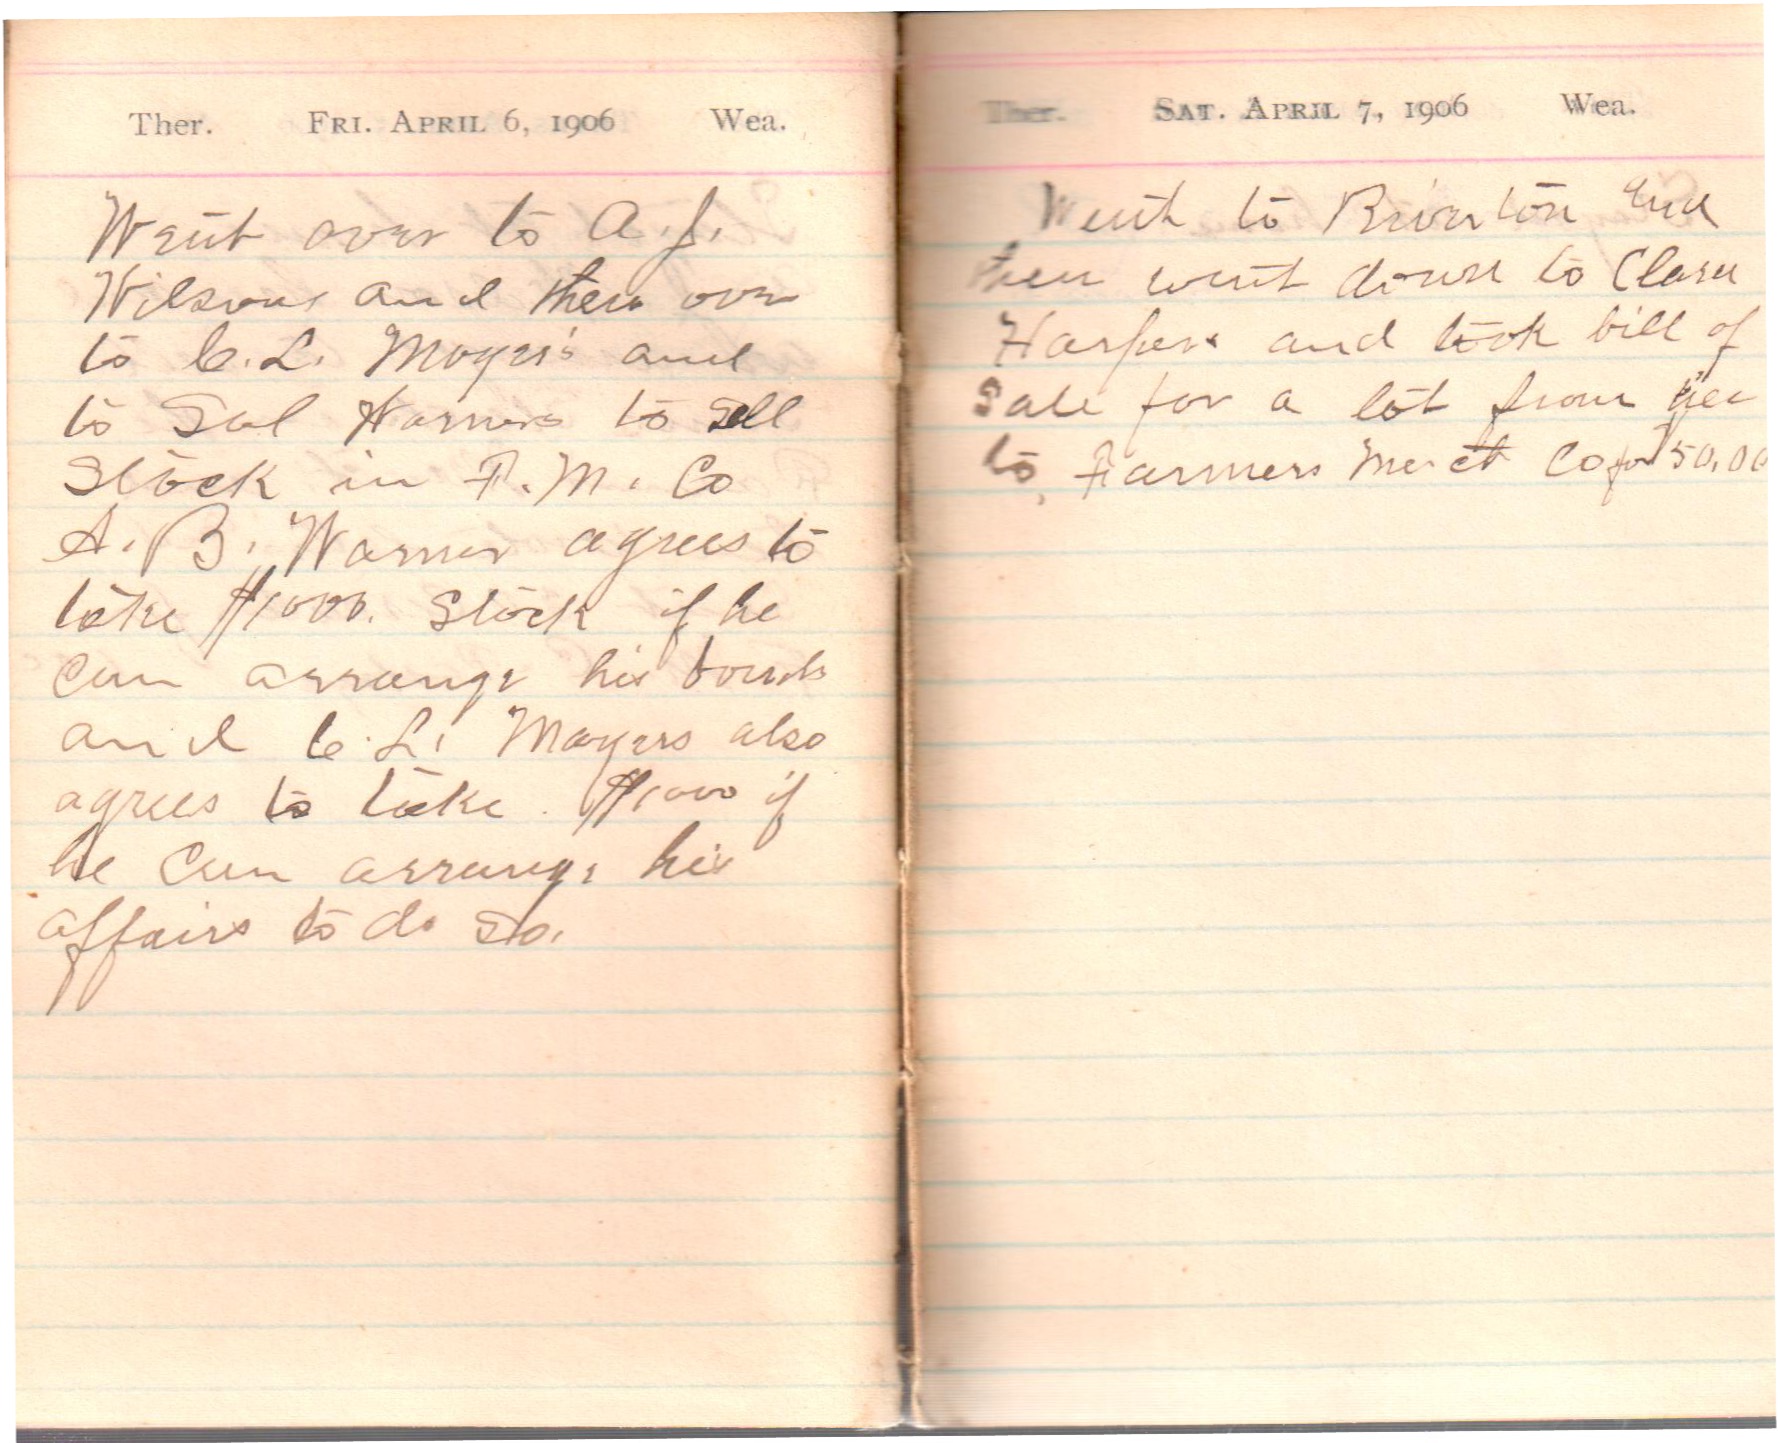 Ther. FRI. APRIL 6, 1906 Wea.
Went over to A. J.
Wilsons and then over
to C. L. Moyer's and
to Sol Warners to sell
Stock in F. M. Co
A. B. Warner agrees to
take $1000. Stock if he
can arrange his bonds
and C. L. Moyers also
agrees to take $1000 if
he can arrange his
affairs to do so.
Ther. SAT. APRIL 7, 1906 Wea.
Went to Riverton and
then went down to Clara
Harpers and took bill of
Sale for a lot from her
to Farmers Merct Co for 50.00